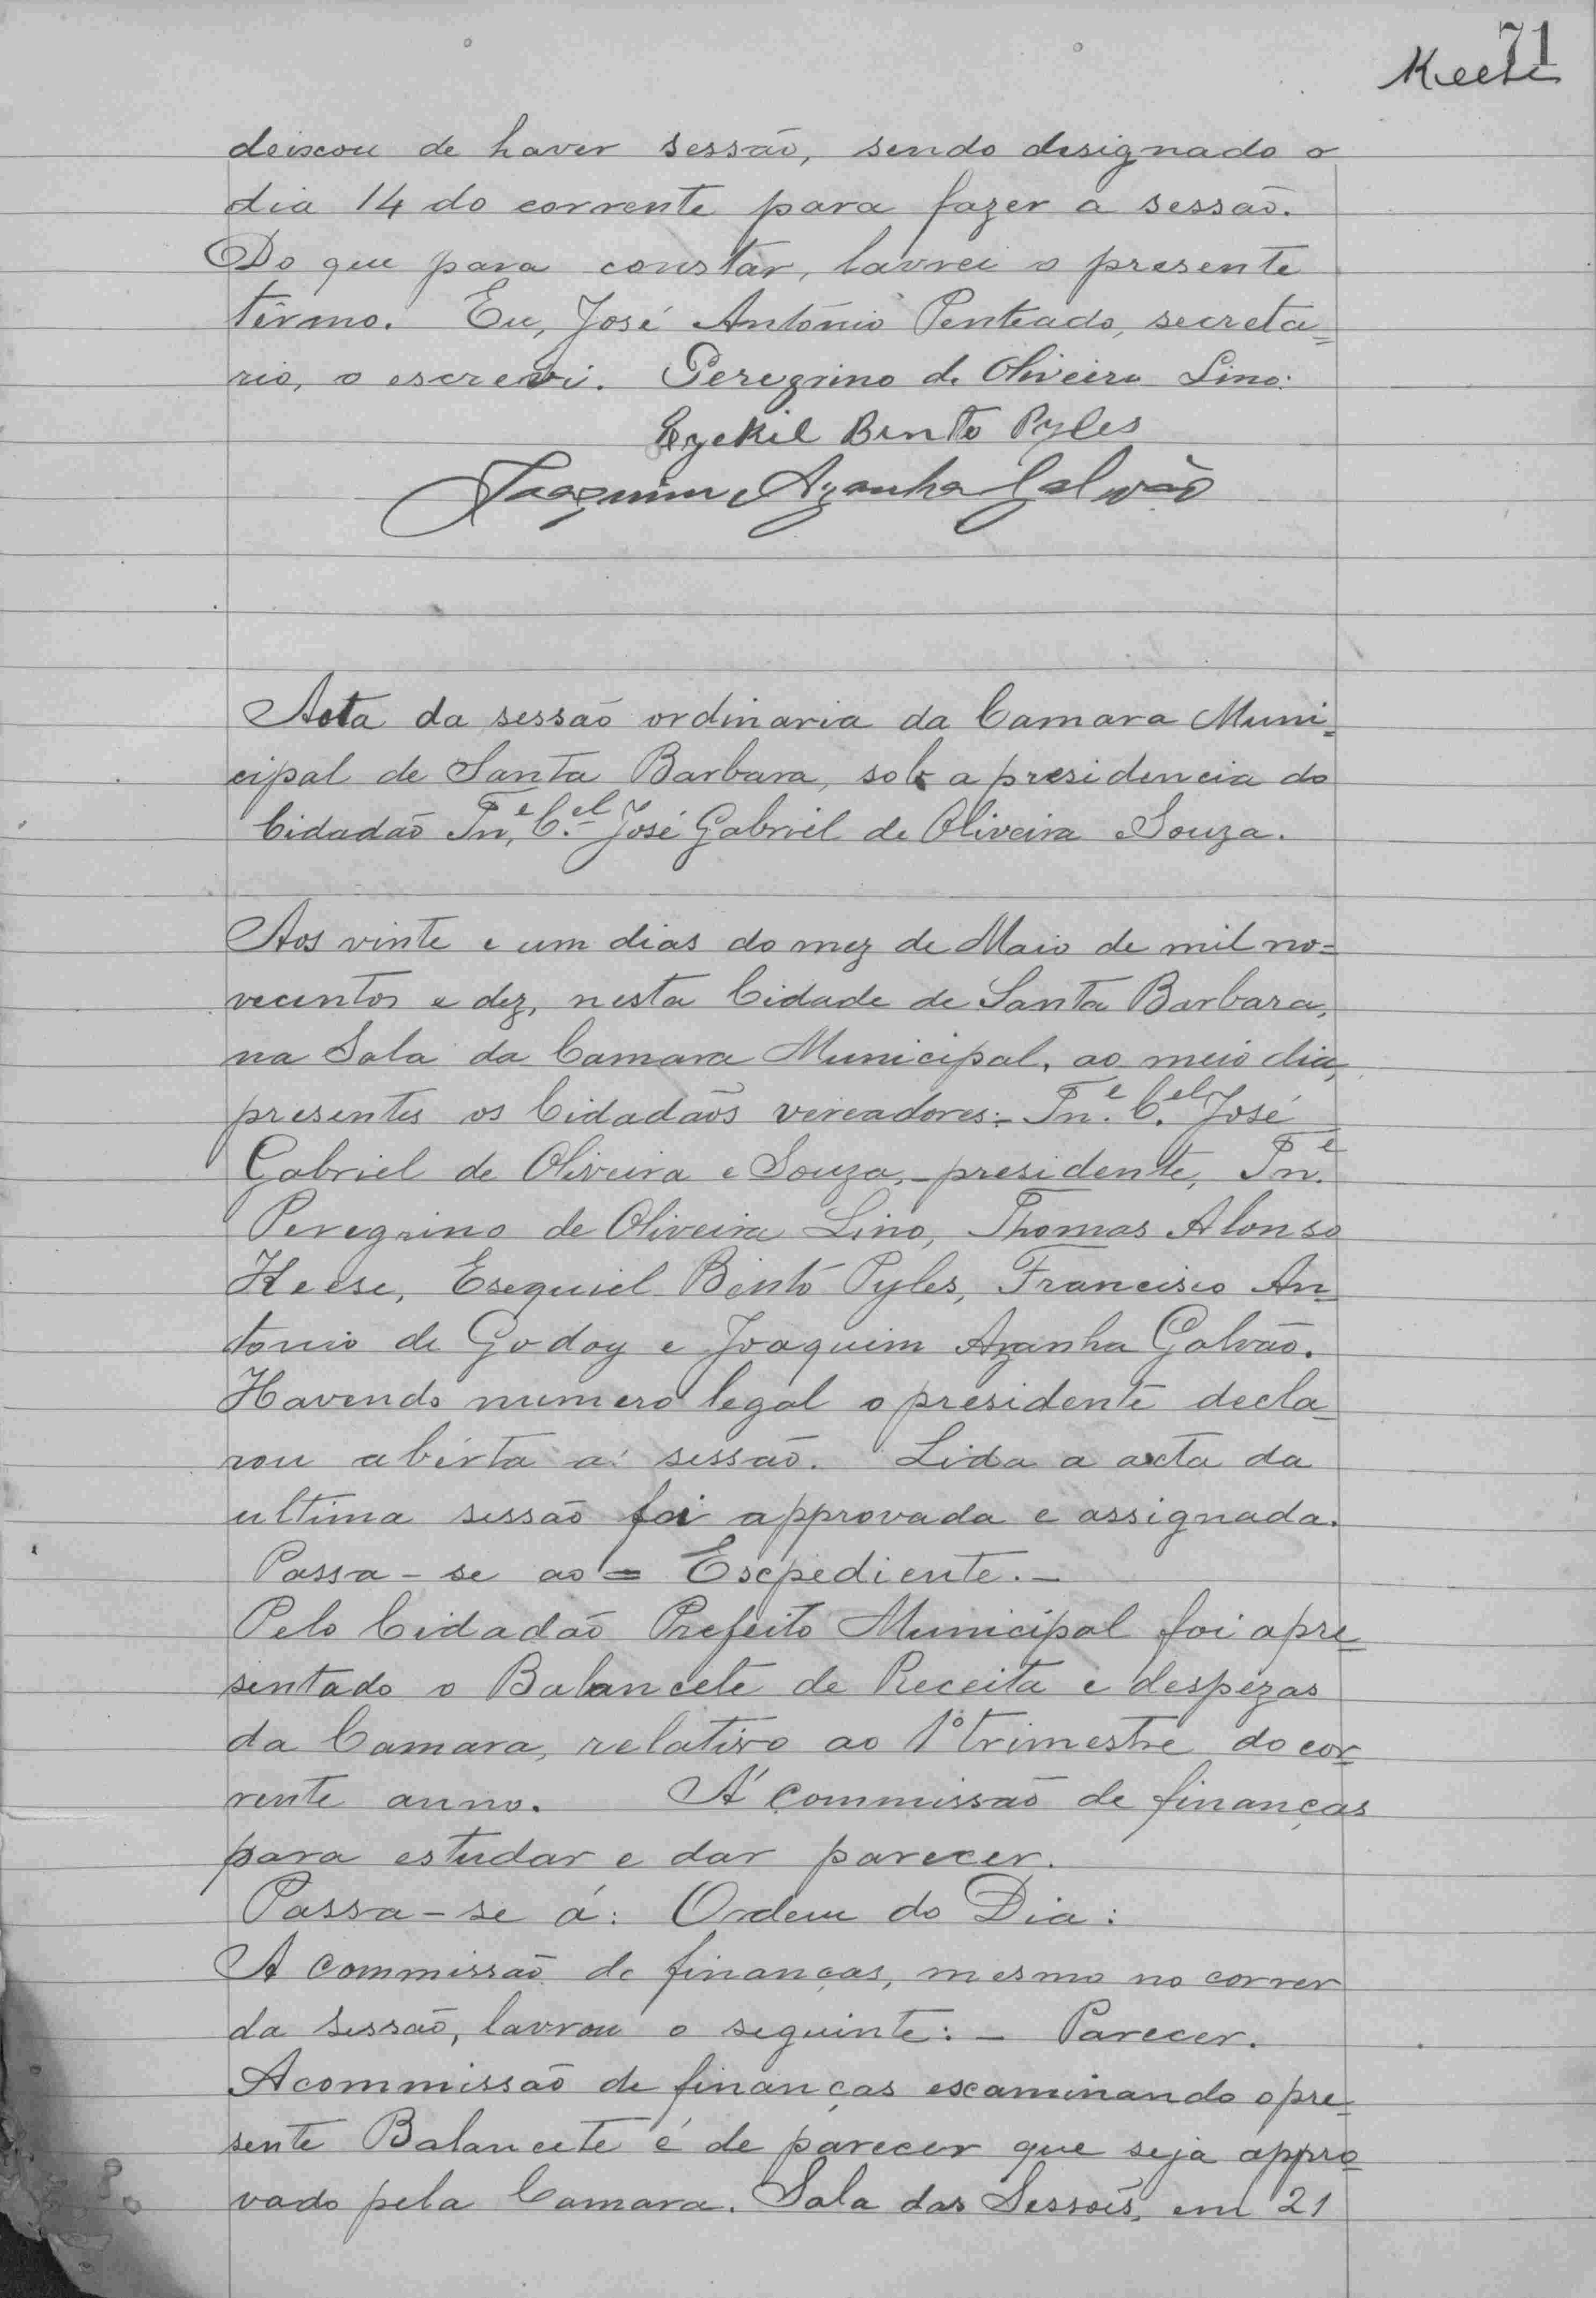 71
Keese
deixou de haver sessão, sendo designado o
dia 14 do corrente para fazer a sessão.
Do que para constar, lavrei o presente
têrmo. Eu, José Antonio Penteado, secreta=
rio, o escrevi. Peregrino de Oliveira Lino.
Ezekil Bento Pyles
Joaquim Azanha Galvão
Acta da sessão ordinaria da Camara Muni=
cipal de Santa Barbara, sob a presidencia do
Cidadão Tn.e C.el José Gabriel de Oliveira e Souza.
Aos vinte e um dias do mez de Maio de mil no=
vecentos e dez, nesta Cidade de Santa Barbara,
na Sala da Camara Municipal, ao meio dia,
presentes os Cidadãos vereadores:- Tn.e C.el José
Gabriel de Oliveira e Souza,- presidente, Tn.e
Peregrino de Oliveira Lino, Thomas Alonso
Keese, Esequiel Bento Pyles, Francisco An=
tonio de Godoy e Joaquim Azanha Galvão.
Havendo numero legal o presidente decla=
rou aberta a sessão. Lida a acta da
ultima sessão foi approvada e assignada.
Passa-se ao = Expediente.-
Pelo Cidadão Prefeito Municipal foi apre=
sentado o Balancete de Receita e despezas
da Camara, relativo ao 1º trimestre do cor=
rente anno. Á commissão de finanças
para estudar e dar parecer.
Passa-se á: Ordem do Dia:
A commissão de finanças, mesmo no correr
da sessão, lavrou o seguinte:- Parecer.
A commissão de finanças examinando o pre=
sente Balancete é de parecer que seja appro=
vado pela Camara. Sala das Sessões, em 21